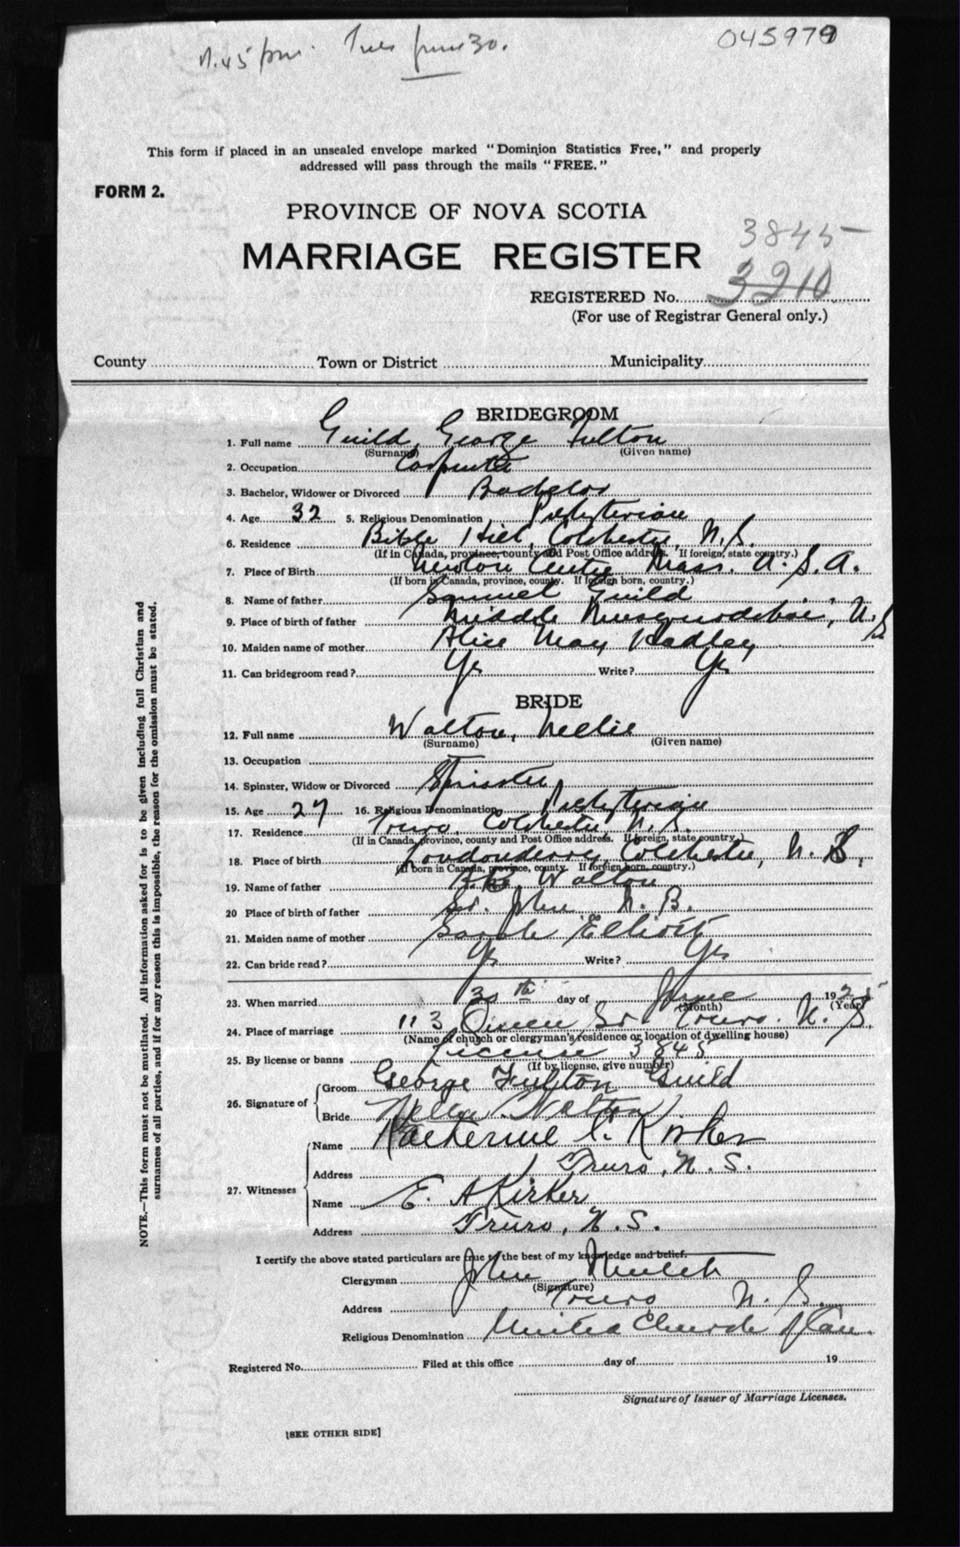 7.45 pm. Tues June 30.
045979
This form if placed in an unsealed envelope marked "Dominion Statistics Free," and properly
addressed will pass through the mails "FREE."
FORM 2.
PROVINCE OF NOVA SCOTIA
3845
MARRIAGE REGISTER
REGISTERED No. 3210
(For use of Registrar General only.)
County Town or District Municipality
BRIDEGROOM
1. Full name Guild, George Fulton
(Surname) (Given name)
2. Occupation Carpenter
3. Bachelor, Widower or Divorced Bachelor
4. Age 32 5. Religious Denomination Presbyterian
6. Residence Bible Hill, Colchester, N.S.
(If in Canada, province, county and Post Office address. If foreign, state country.)
7. Place of Birth Newton Centre Mass. U.S.A.
(If born in Canada, province, county. If foreign born, country.)
8. Name of father Samuel Guild
9. Place of birth of father Middle Musquodoboit, N.S
10. Maiden name of mother Alice May
11. Can bridegroom read? Yes Write? Yes
BRIDE
12. Full name Walton, Nellie
(Surname) (Given name)
13. Occupation
14. Spinster, Widow or Divorced Spinster
15. Age 27 16. Religious Denomination Presbyterian
17. Residence Truro, Colchester, N.S.
(If in Canada, province, county and Post Office address. If foreign, state country.)
18. Place of birth Londonderry, Colchester, N.S.
(If born in Canada, province, county. If foreign born, country.)
19. Name of father Walton
20 Place of birth of father St. John N.B.
21. Maiden name of mother Sarah Elliott
22. Can bride read? Yes Write? Yes
23. When married 30th day of June 1925
(Month) (Year)
24. Place of marriage 113 Queen St. Truro. N.S.
(Name of church or clergyman's residence or location of dwelling house)
25. By license or banns License 3845
(If by license, give number)
26. Signature of Groom George Fulton Guild
Bride Nellie Walton
27. Witnesses Name Katherine C. Kirker
Address Truro, N.S.
Name E. A Kirker
Address Truro, N.S.
I certify the above stated particulars are true to the best of my knowledge and belief.
Clergyman John
(Signature)
Address Truro N.S.
Religious Denomination United Church of Can.
Registered No. Filed at this office day of 19
Signature of Issuer of Marriage Licenses.
[SEE OTHER SIDE]
NOTE.—This form must not be mutilated. All information asked for is to be given including full Christian and
surnames of all parties, and if for any reason this is impossible, the reason for the omission must be stated.